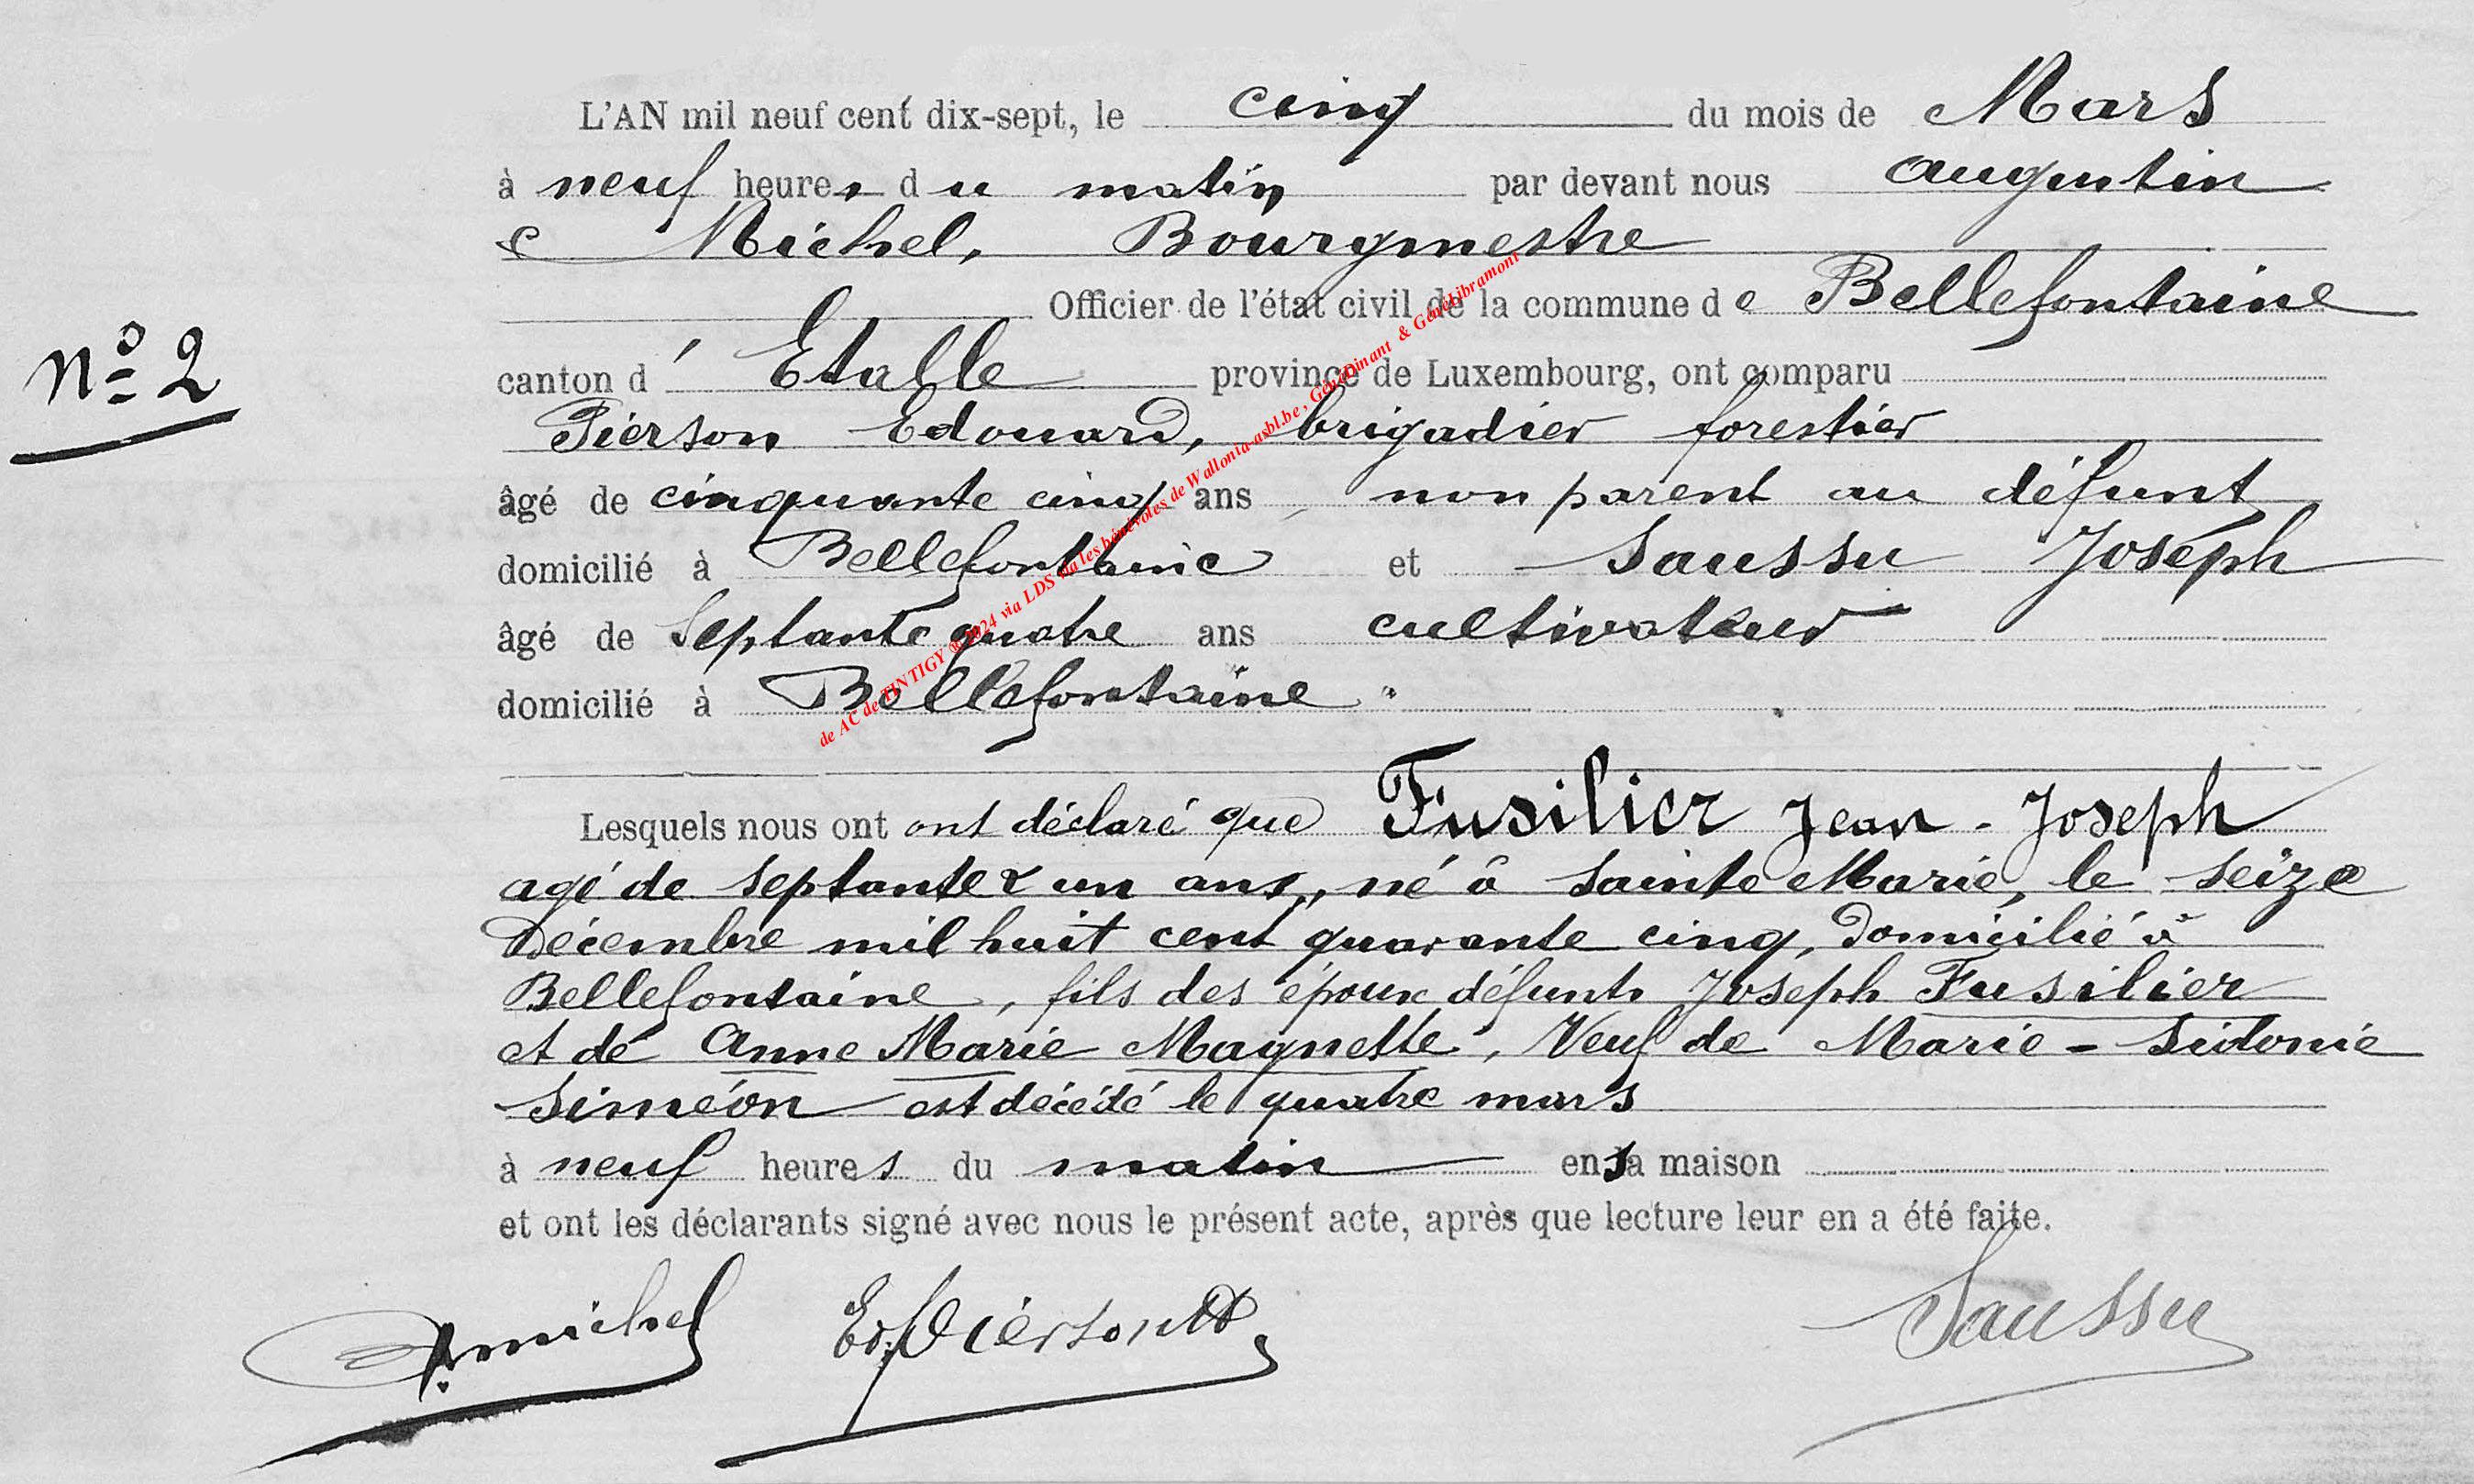 L'AN mil neuf cent dix-sept, le cinq du mois de Mars
à neuf heures du matin par devant nous Augustin
Michel, Bourgmestre
Officier de l'état civil de la commune de Bellefontaine
N° 2
canton d' Etalle province de Luxembourg, ont comparu
Pierson Edouard, brigadier forestier
âgé de cinquante cinq ans, non parent au défunt
domicilié à Bellefontaine et Saussu Joseph
âgé de Septante quatre ans cultivateur
domicilié à Bellefontaine.
de AC de TINTIGY © 2024 via LDS via les bénévoles de Wallonia-asbl.be, GénéDinant & GénéLibramont
Lesquels nous ont ont déclaré que Fusilier Jean-Joseph
agé de septante & un ans, né à Sainte Marie, le seize
Décembre mil huit cent quarante cinq, domicilié à
Bellefontaine, fils des époux défunts Joseph Fusilier
et de Anne Marie Magnette, Veuf de Marie-Sidonie
Siméon est décédé le quatre mars
à neuf heures du matin en sa maison
et ont les déclarants signé avec nous le présent acte, après que lecture leur en a été faite.
A. Michel Ed. Pierson Saussu